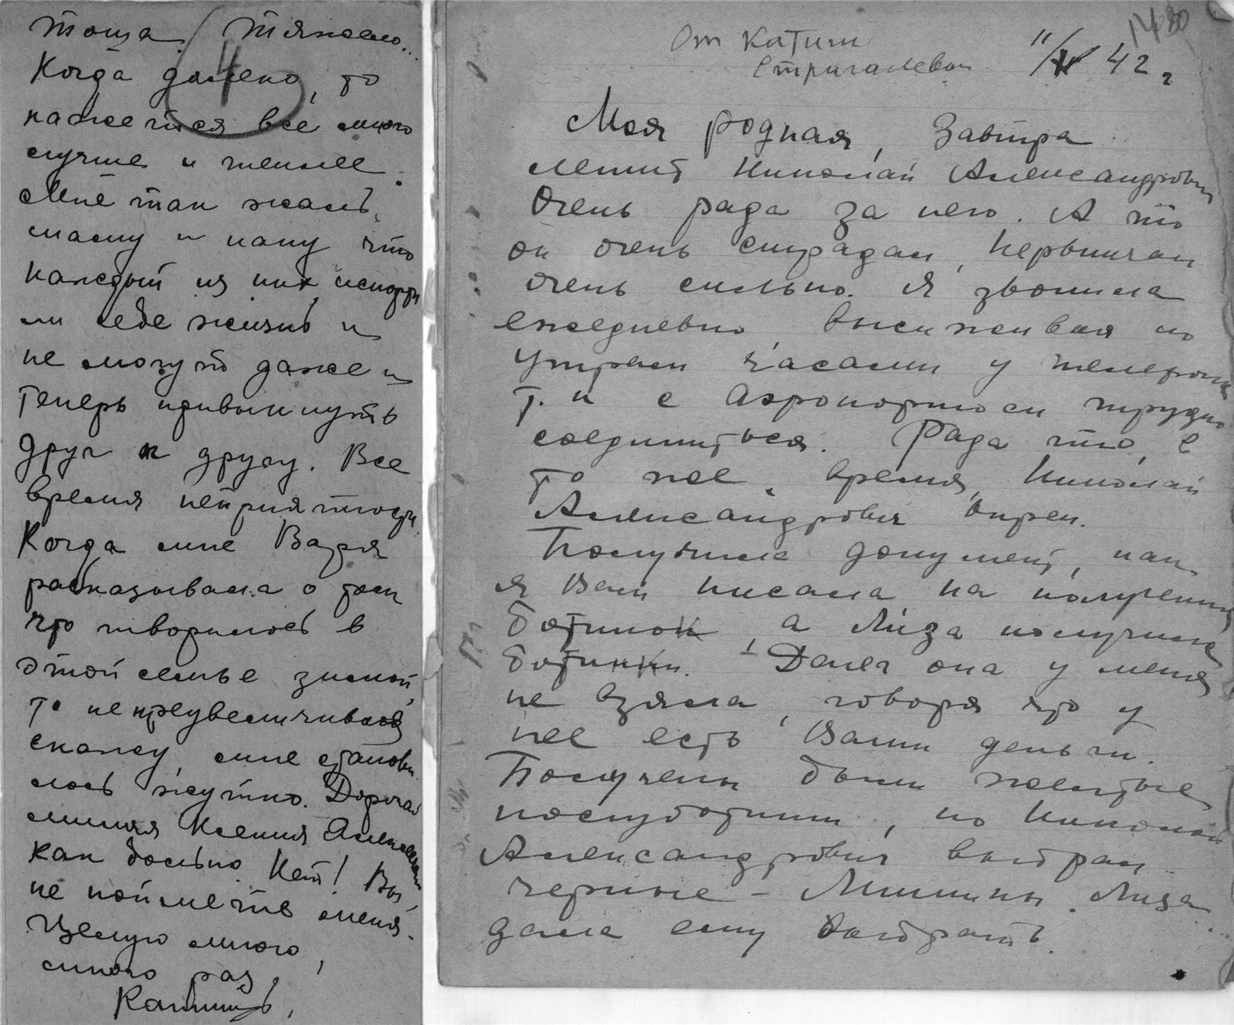 тоща. Тяжело...
4
Когда далеко, то
кажется все много
лучше и теплее.
Мне так жаль,
маму и папу что
каждый из них испорти
ли себе жизнь и
не могут даже и
теперь привыкнуть
друг к другу. Все
время неприятности.
Когда мне Варя
рассказывала о том
что творилось в
этой семье зимой,
то не преувеличивая
скажу, мне станови
лось жутко. Дорогая
милая Ксения Алексеевна
как больно. Нет! Вы,
не поймете меня.
Целую много,
много раз,
Катиш,
1480
От Катиш
Стригалевой
11/X 42 г
Моя родная, Завтра
летит Николай Александрович
Очень рада за него. А то
он очень страдал, нервничал
очень сильно. Я звонила
ежедневно высиживая по
утрам часами у телефона
т. к с Аэропортом трудно
соединиться. Рада что, в
то же время, Николай
Александрович окреп.
Получила документ, как
я Вам писала на получение
ботинок, а Лиза получила
ботинки. Денег она у меня
не взяла, говоря что у
нее есть Ваши деньги.
Получены были желтые
полуботинки, но Николай
Александрович выбрал
черные – Мишины. Лиза
дала ему выбрать.